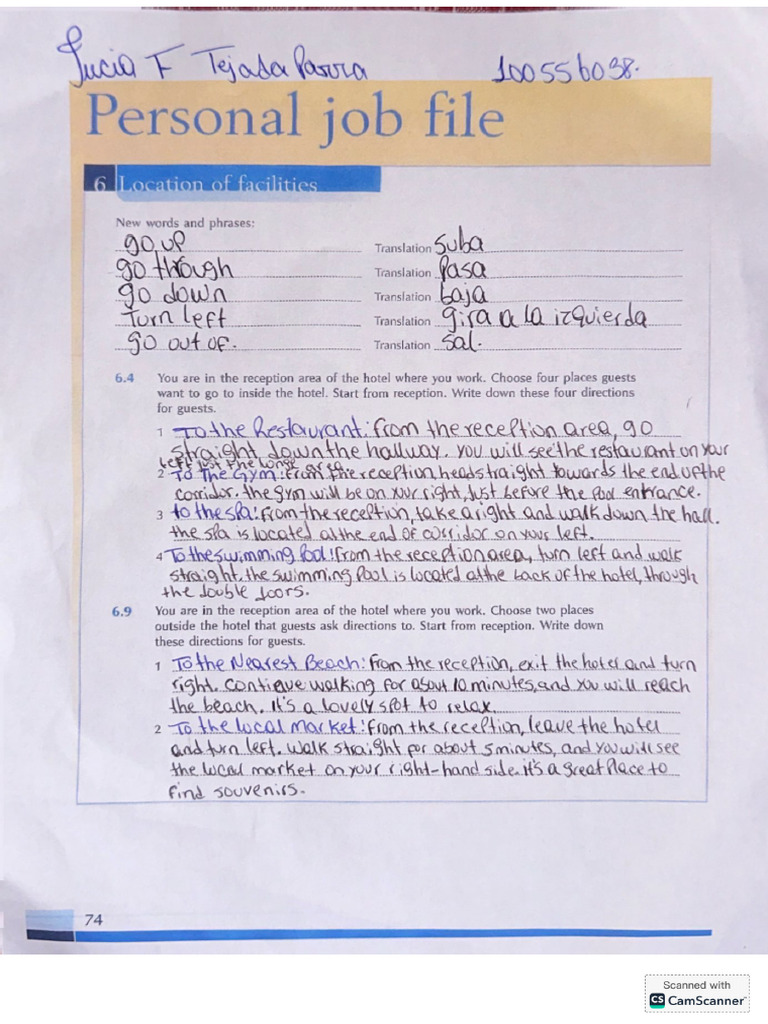 Lucia F Tejada Parra 100556038.
Personal job file
6 Location of facilities
New words and phrases:
go up Translation Suba
go through Translation Pasa
go down Translation baja
Turn left Translation gira a la izquierda
go out of. Translation sal.
6.4 You are in the reception area of the hotel where you work. Choose four places guests
want to go to inside the hotel. Start from reception. Write down these four directions
for guests.
1 To the Restaurant: from the reception area, go
straight down the hallway. you will see the restaurant on your
left just the area
2 To The Gym: From the reception head straight towards the end of the
corridor. the gym will be on your right, Just before the Pool entrance.
3 to the spa: from the reception, take a right and walk down the hall.
the spa is located at the end of corridor on your left.
4 To the swimming Pool: from the reception area, turn left and walk
straight. the swimming Pool is located at the back of the hotel, through
the double doors.
6.9 You are in the reception area of the hotel where you work. Choose two places
outside the hotel that guests ask directions to. Start from reception. Write down
these directions for guests.
1 To the Nearest Beach: from the reception, exit the hotel and turn
right. continue walking for about 10 minutes, and you will reach
the beach. It's a lovely spot to relax.
2 To the local market: from the reception, leave the hotel
and turn left. walk straight for about 5 minutes, and you will see
the local market on your right-hand side. it's a great Place to
find souvenirs.
74
Scanned with
CS CamScanner